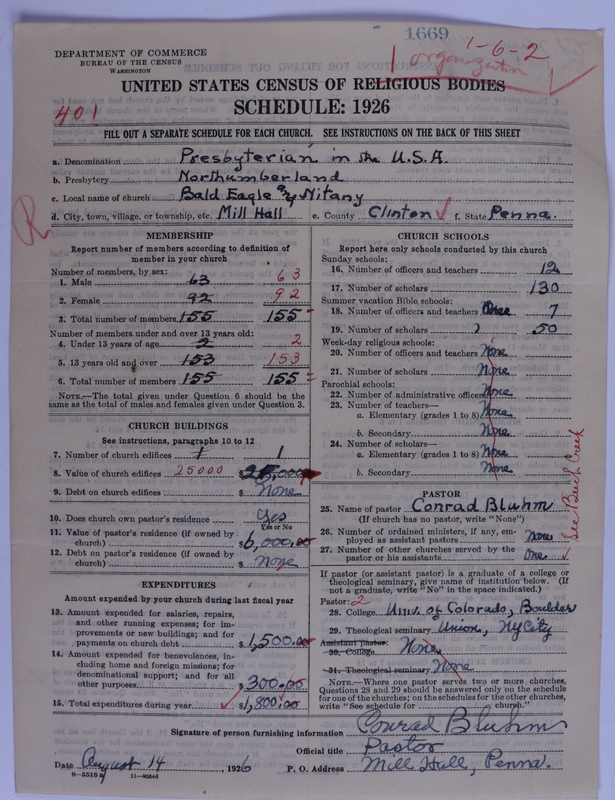 1669
DEPARTMENT OF COMMERCE
BUREAU OF THE CENSUS
WASHINGTON
1-6-2
organization
UNITED STATES CENSUS OF RELIGIOUS BODIES
401
SCHEDULE: 1926
FILL OUT A SEPARATE SCHEDULE FOR EACH CHURCH. SEE INSTRUCTIONS ON THE BACK OF THIS SHEET
a. Denomination Presbyterian in the U.S.A.
b. Presbytery Northumberland
c. Local name of church Bald Eagle & Nitany
d. City, town, village, or township, etc. Mill Hall e. County Clinton f. State Penna.
R
MEMBERSHIP
Report number of members according to definition of
member in your church
Number of members, by sex:
1. Male 63 63
2. Female 92 92
3. Total number of members 155 155
Number of members under and over 13 years old:
4. Under 13 years of age 2 2
5. 13 years old and over 153 153
6. Total number of members 155 155
NOTE.—The total given under Question 6 should be the
same as the total of males and females given under Question 3.
CHURCH BUILDINGS
See instructions, paragraphs 10 to 12
7. Number of church edifices 1 1
8. Value of church edifices 25000 $ 25,000
9. Debt on church edifices $ None
10. Does church own pastor's residence Yes
Yes or No
11. Value of pastor's residence (if owned by
church) $6,000.00
12. Debt on pastor's residence (if owned by
church) $ None
EXPENDITURES
Amount expended by your church during last fiscal year
13. Amount expended for salaries, repairs,
and other running expenses; for im-
provements or new buildings; and for
payments on church debt $1,500.00
14. Amount expended for benevolences, in-
cluding home and foreign missions; for
denominational support; and for all
other purposes 300.00
15. Total expenditures during year $1,800.00
CHURCH SCHOOLS
Report here only schools conducted by this church
Sunday schools:
16. Number of officers and teachers 12
17. Number of scholars 130
Summer vacation Bible schools:
18. Number of officers and teachers 7
19. Number of scholars 50
Week-day religious schools:
20. Number of officers and teachers None
21. Number of scholars None
Parochial schools:
22. Number of administrative officers None
23. Number of teachers—
a. Elementary (grades 1 to 8) None
b. Secondary None
24. Number of scholars—
a. Elementary (grades 1 to 8) None
b. Secondary None
PASTOR
25. Name of pastor Conrad Bluhm
(If church has no pastor, write "None")
26. Number of ordained ministers, if any, em-
ployed as assistant pastors None
27. Number of other churches served by the
pastor or his assistants One
See Beech Creek
If pastor (or assistant pastor) is a graduate of a college or
theological seminary, give name of institution below. (If
not a graduate, write "No" in the space indicated.)
Pastor: 2
28. College Univ. of Colorado, Boulder
29. Theological seminary Union, NY City
Assistant pastor:
30. College None
31. Theological seminary None
NOTE.—Where one pastor serves two or more churches,
Questions 28 and 29 should be answered only on the schedule
for one of the churches; on the schedules for the other churches,
write "See schedule for church."
Signature of person furnishing information Conrad Bluhm
Official title Pastor
Date August 14, 1926 P. O. Address Mill Hall, Penna.
8-5518 11-9004d